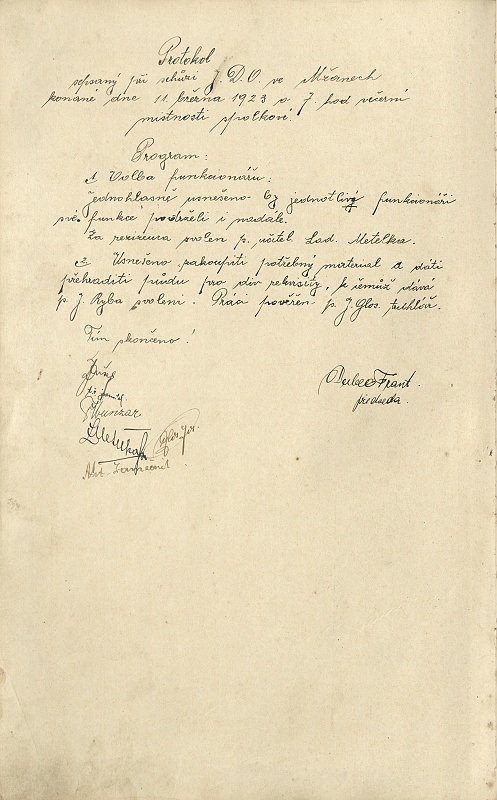 Protokol
sepsaný při schůzi J. D. O. ve Mžanech
konané dne 11. března 1923 o 7. hod večerní
místnosti spolkové.
Program:
1. Volba funkcionářů:
Jednohlasně usnešeno by jednotlivý funkcionáři
své funkce podrželi i nadále.
Za režiséra zvolen p. učitel Lad. Metelka.
2. Usnešeno zakoupiti potřebný material a dáti
přehraditi půdu pro div. rekvisity, k čemuž dává
p. J. Ryba svolení. Práci pověřen p. J. Glos, truhlář.
Tím skončeno!
Dubec Frant.
předseda.
Hunzar
LMetelka
Glos Jos.
Ant. Zámečník